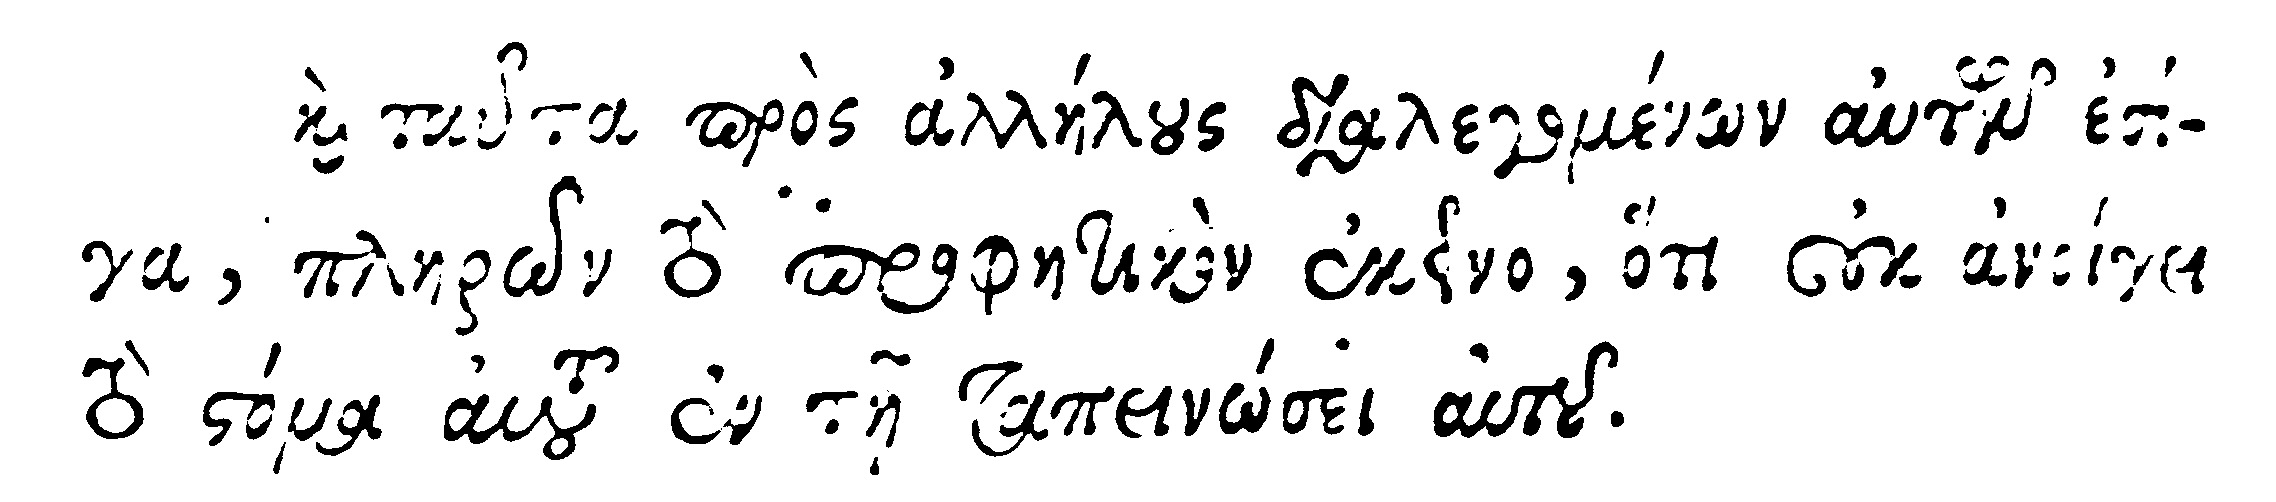 καὶ ταῦτα πρὸς ἀλλήλους διαλεγομένων αὐτῶν ἐσί-
γα, πληρῶν τὸ προφητικὸν ἐκεῖνο, ὅτι οὐκ ἀνοίγει
τὸ στόμα αὐτοῦ ἐν τῇ ταπεινώσει αὐτοῦ.